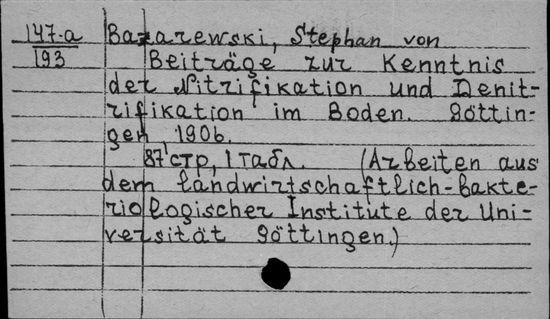 147-a
193
Bazarewski, Stephan von
Beiträge zur Kenntnis
der Nitrifikation und Denit-
rifikation im Boden. Göttin-
gen, 1906.
87 стр, 1 табл. (Arbeiten aus
dem landwirtschaftlich-bakte-
riologischer Institute der Uni-
versität Göttingen.)